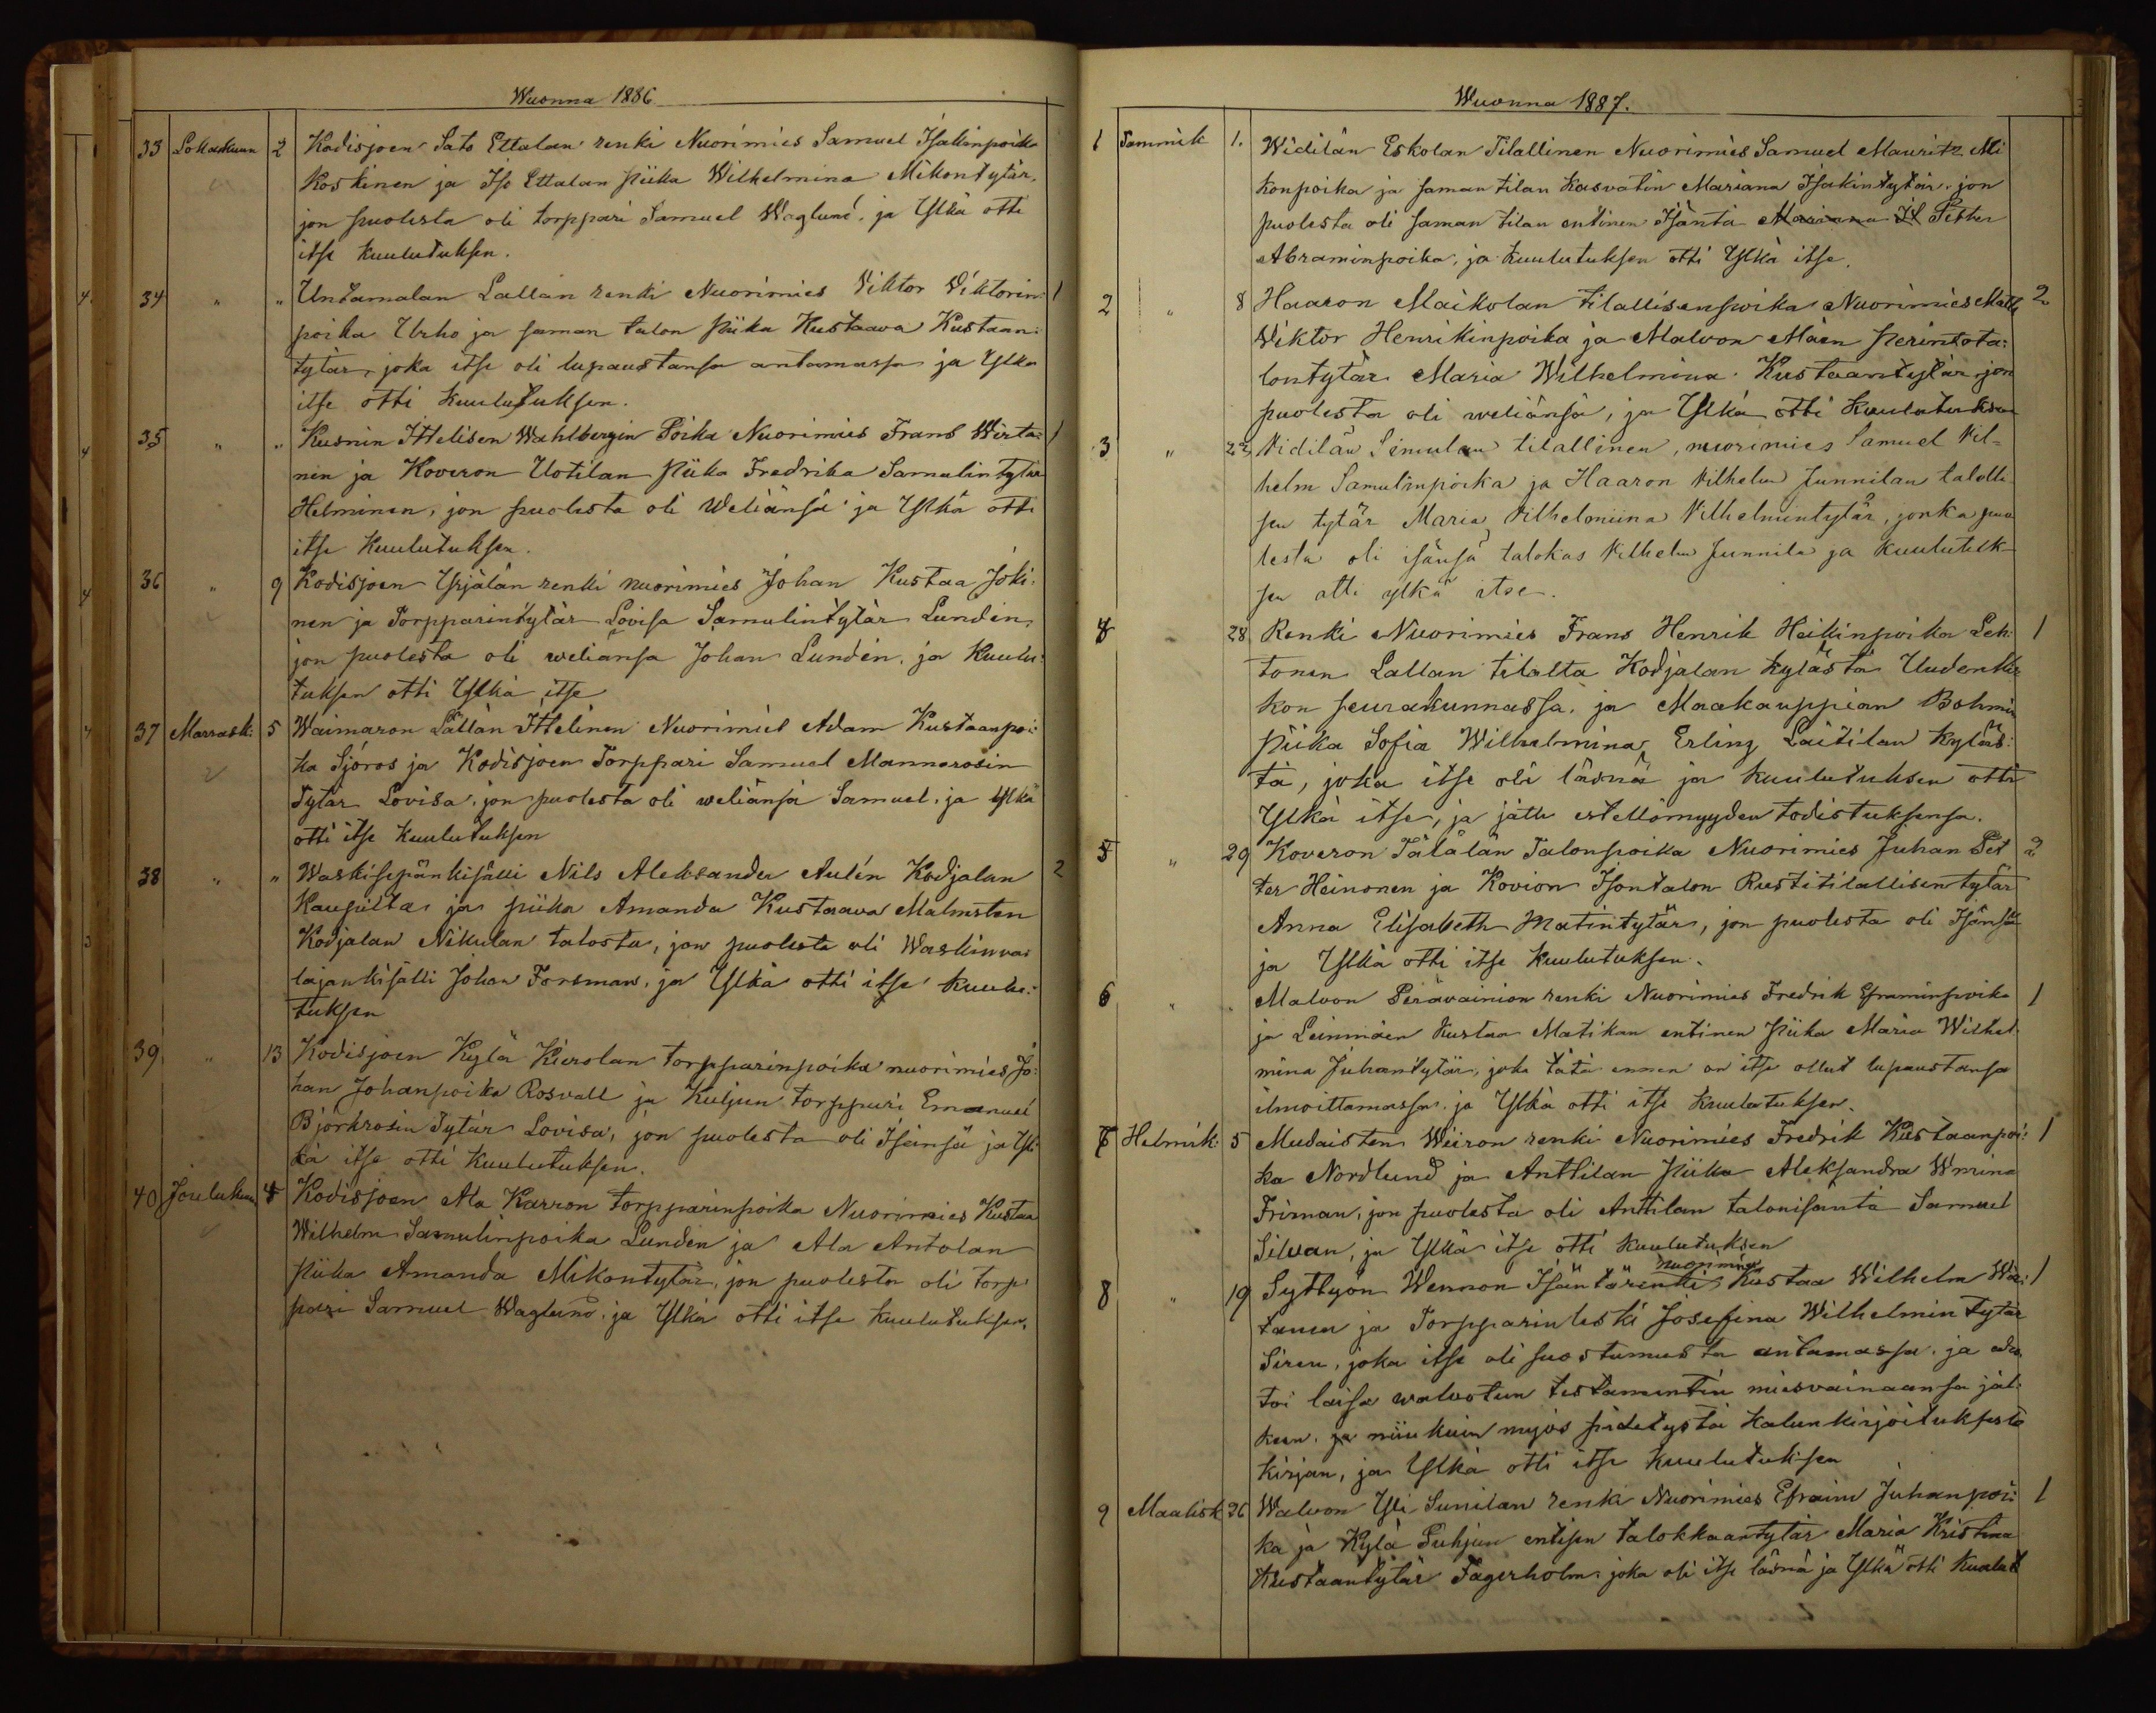 Wuonna 1886
33 Lokakuun 2 Kodisjoen Sato Ettalan renki Nuorimies Samuel Isakinpoika
Koskinen ja Iso Ettalan piika Wilhelmina Mikontytär,
jon puolesta oli torppari Samuel Waglund, ja Ylkä otti
itse kuulutuksen.
34 " " Untamalan Lallan renki Nuorimies Viktor Viktorin- 1
poika Urho ja saman talon piika Kustaava Kustaan-
tytär, joka itse oli lupaustansa antamassa ja Ylkä
itse otti kuulutuksen.
35 " " Kusnin Ittelisen Wahlbergin Poika Nuorimies Frans Wirta- 1
nen ja Koveron Uotilan piika Fredrika Samulintytär
Helminen, jon puolesta oli Weljänsä ja Ylkä otti
itse kuulutuksen.
36 " 9 Kodisjoen Yrjälän renki nuorimies Johan Kustaa Joki-
nen ja Torpparintytär Lovisa Samulintytär Lundén,
jon puolesta oli weljänsä Johan Lundén, ja kuulu-
tuksen otti Ylkä itse
37 Marrask: 5 Waimaron Lallan Ittelinen Nuorimies Adam Kustaanpoi-
ka Sjöros ja Kodisjoen Torppari Samuel Mannerosin
Tytär Lovisa, jon puolesta oli weljänsä Samuel, ja Ylkä
otti itse kuulutuksen
38 " " Waskisepänkisälli Nils Aleksander Aulén Kodjalan 2
Kaupilta ja piika Amanda Kustaava Malmsten
Kodjalan Nikulan talosta, jon puolesta oli Waskinva-
lajankisälli Johan Forsman, ja Ylkä otti itse kuulu-
tuksen
39 " 13 Kodisjoen Kylä Kierolan torpparinpoika nuorimies Jo-
han Johanpoika Rosvall ja Kuljun torppari Emanuel
Björkrosin Tytär Lovisa, jon puolesta oli Isänsä ja Yl-
kä itse otti kuulutuksen.
40 Joulukuun 4 Kodisjoen Ala Karron torpparinpoika Nuorimies Kustaa
Wilhelm Samulinpoika Lundén ja Ala Antolan
piika Amanda Mikontytär, jon puolesta oli torp-
pari Samuel Waglund, ja Ylkä otti itse kuulutuksen.
Wuonna 1887.
1 Tammik 1. Widilän Eskolan Tilallinen Nuorimies Samuel Mauritz Mi
konpoika ja saman tilan kasvatin Mariana Isakintytär, jon
puolesta oli saman tilan entinen Isäntä Petter
Abraminpoika, ja kuulutuksen otti Ylkä itse.
2 " 8 Haaron Maikolan tilallisenpoika Nuorimies Matts 2
Wiktor Henrikinpoika ja Malvon Mäen perintöta-
lontytär Maria Wilhelmina Kustaantytär, jon
puolesta oli weljänsä, ja Ylkä otti kuulutuksen
3 " 22 Vidilän Simulan tilallinen, nuorimies Samuel Vil-
helm Samulinpoika ja Haaron Vilhelm Junnilan talolli
sen tytär Maria Vilhelmiina Vilhelmintytär, jonka puo
lesta oli isänsä talokas Vilhelm Junnila ja kuulutuk-
sen otti ylkä itse.
4 " 28 Renki Nuorimies Frans Henrik Heikinpoika Leh- 1
tonen Lallan tilalta Kodjalan kylästä Uudenkir
kon seurakunnassa, ja Maakauppian Bohmin
piika Sofia Wilhelmina Erling Laitilan kyläs-
tä, joka itse oli läsnä ja kuulutuksen otti
Ylkä itse, ja jätti estellömyyden todistuksensa.
5 " 29 Koveron Tälälän Talonpoika Nuorimies Juhan Pet 2
ter Heinonen ja Kovion Isontalon Rustitilallisen tytär
Anna Elisabeth Matintytär, jon puolesta oli Isänsä
ja Ylkä otti itse kuulutuksen.
6 " " Malvon Perävainion renki Nuorimies Fredrik Eframinpoika 1
ja Leinmäen Kustaa Matikan entinen piika Maria Wilhel
mina Juhantytär, joka tätä ennen on itse ollut lupaustansa
ilmoittamassa, ja Ylkä otti itse kuulutuksen.
7 Helmik: 5 Mudaisten Wiiron renki Nuorimies Fredrik Kustaanpoi- 1
ka Nordlund ja Anttilan piika Aleksandra
Friman, jon puolesta oli Anttilan talonisäntä Samuel
Silvan, ja Ylkä itse otti kuulutuksen
nuorimies
8 " 19 Syttyön Wennon Isäntärenki Kustaa Wilhelm Wir- 1
tanen ja Torpparinleski Josefina Wilhelmintytär
Siren, joka itse oli suostumusta antamassa, ja
toi laisa walvotun testamentin miesvainaansa jäl-
keen, ja niinkuin myös pidetystä kalunkirjoituksesta
kirjan, ja Ylkä otti itse kuulutuksen
9 Maalisk 26 Walvon Yli Sunilan renki Nuorimies Efraim Juhanpoi- 1
ka ja Kylä Puhjun entisen talokkaantytär Maria Kristina
Kustaantytär Fagerholm, joka oli itse läsnä ja Ylkä otti kuulut